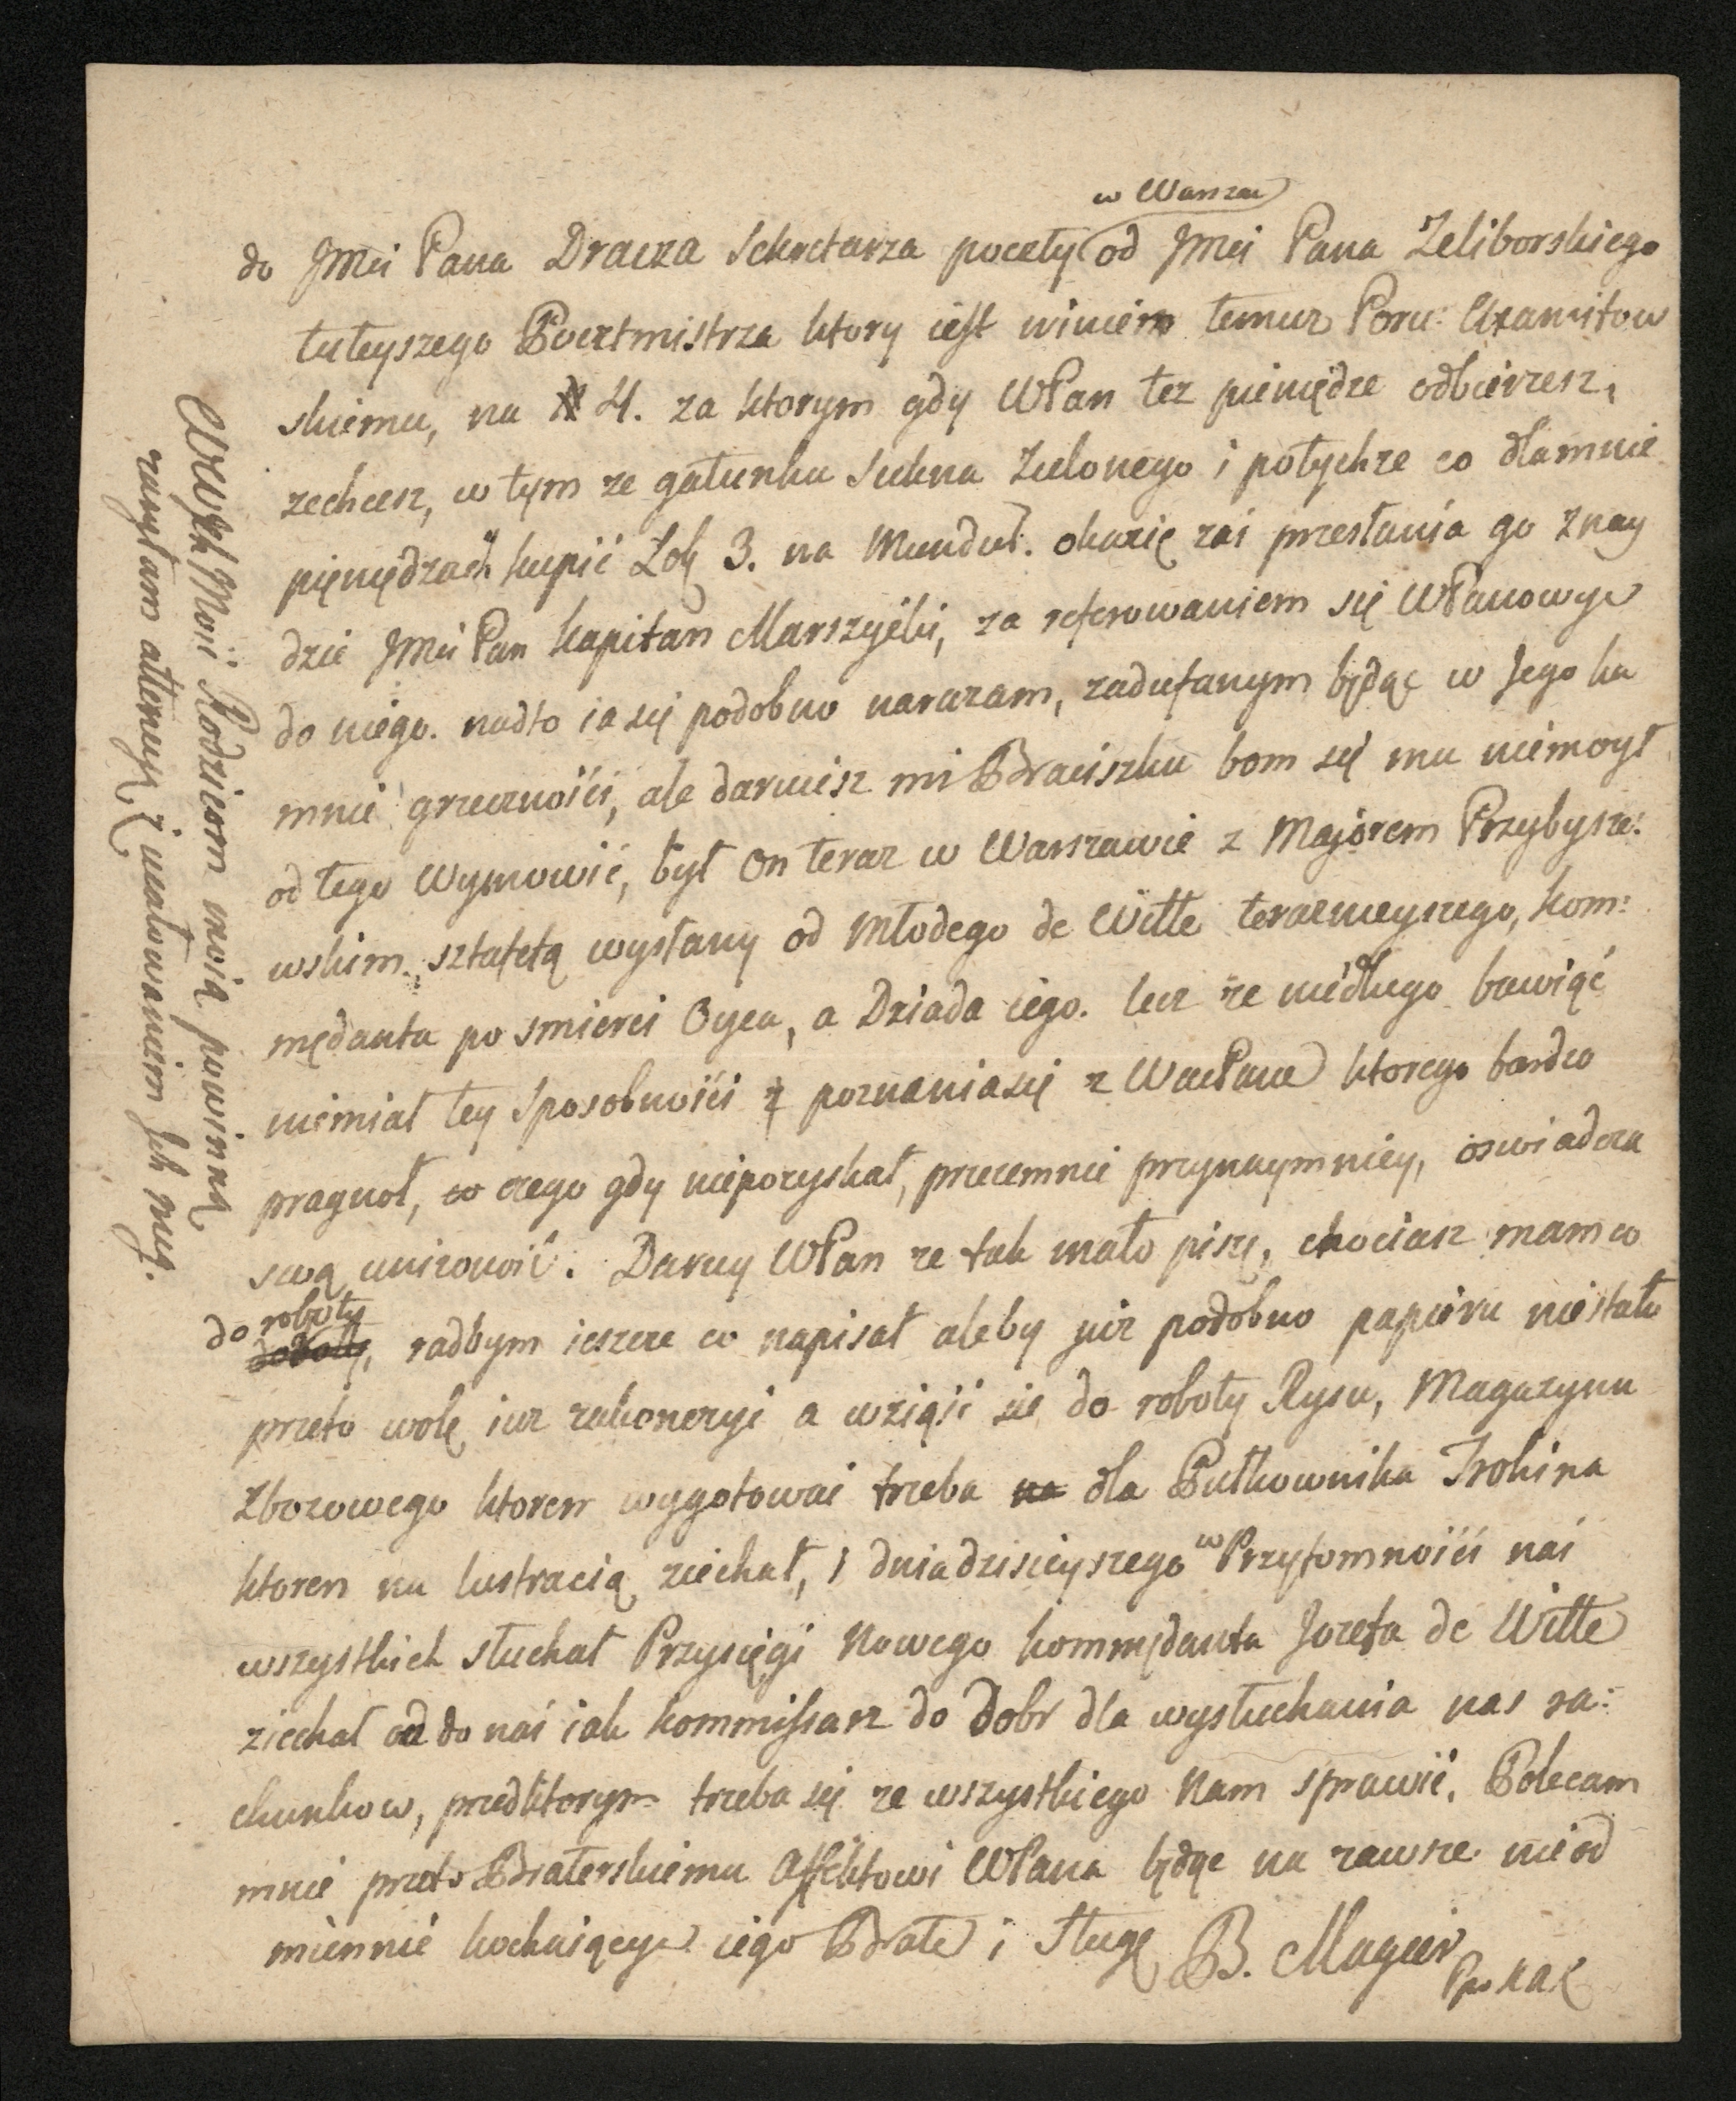 w Warszaw
do JMci Pana Dracza Sekretarza poczty od JMci Pana Zeliborskiego
tuteyszego Pocztmistrza ktory iest winien temuz Poru: Axamitow
skiemu, na # 4. za ktorym gdy WPan tez pieniędze odbierzesz,
zechcesz, w tym ze gatunku Sukna Zielonego i po tychze co dlamnie
pięniędzach kupić Łok 3. na Mundur. okazię zaś przesłania go znay
dzie JMci Pan Kapitan Marszycki, za referowaniem się WPanowym
do niego. nadto ia się podobno narazam, zadufanym będąc w Jego ku
mnie grzecznośći, ale daruiesz mi Braciszku bom się mu niemogł
od tego Wymowić, był on teraz w Warszawie z Majorem Przybysze:
wskim, sztafetą wysłany od Młodego de Witte teraznieyszego, kom:
mędanta po smierci Oyca, a Dziada iego. lecz ze niedługo bawiąć
niemiał tey Sposobnośći poznania się z WacPanem ktorego bardzo
pragnoł, czego gdy niepozyskał, przezemnie przynaymniey, oswiadcza
swą unizoność. Daruy WPan ze tak mało piszę, chociasz mam co
do roboty
radbym ieszcze co napisał aleby juz podobno papieru niestało
przeto wolę iuz zakonczyć a wziąść się do roboty Rysu, Magazynu
Zbozowego ktoren wygotować trzeba na dla Pułkownika Jrokina
ktoren na lustracią ziechał, i dnia dzisieyszego w Przytomnośći naś
wszystkich słuchał Przysięgi Nowego kommędanta Jozefa de Witte
ziechał do naś iak kommissarz do Dobr dla wysłuchania nas ra:
chunkow, przedktorym trzeba się ze wszystkiego Nam sprawić, Polecam
mnie przeto Braterskiemu Affektowi WPana będąc na zawsze nieod
miennie kochaiącym iego Bratem i Sługą B. Magier
WWych Moić Rodzicom moią powinną
zasyłam attencyą z ucałowaniem Jch nug.